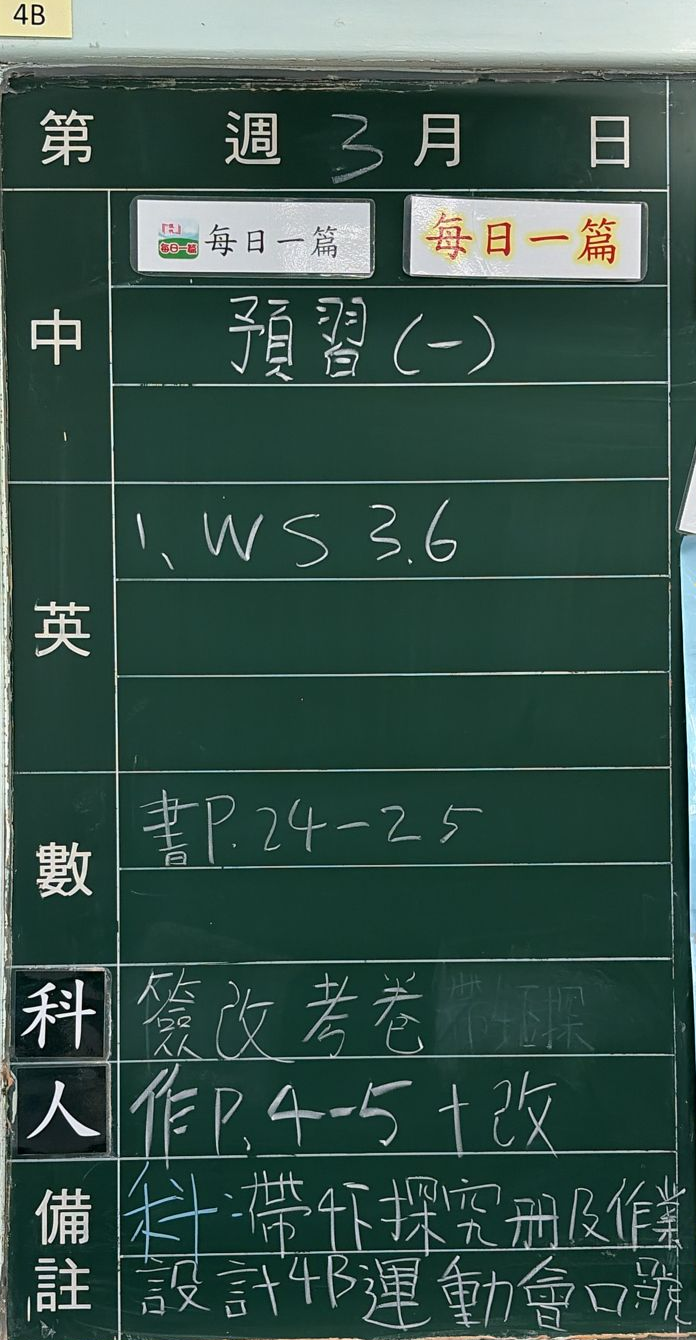 4B
第 週 3 月 日
每日一篇 每日一篇 每日一篇
中
預習(一)
英
1、WS 3.6
數
書P.24-25
科
簽改考卷
人
作P.4-5+改
備註
科:帶4下探究册及作業
設計4B運動會口號